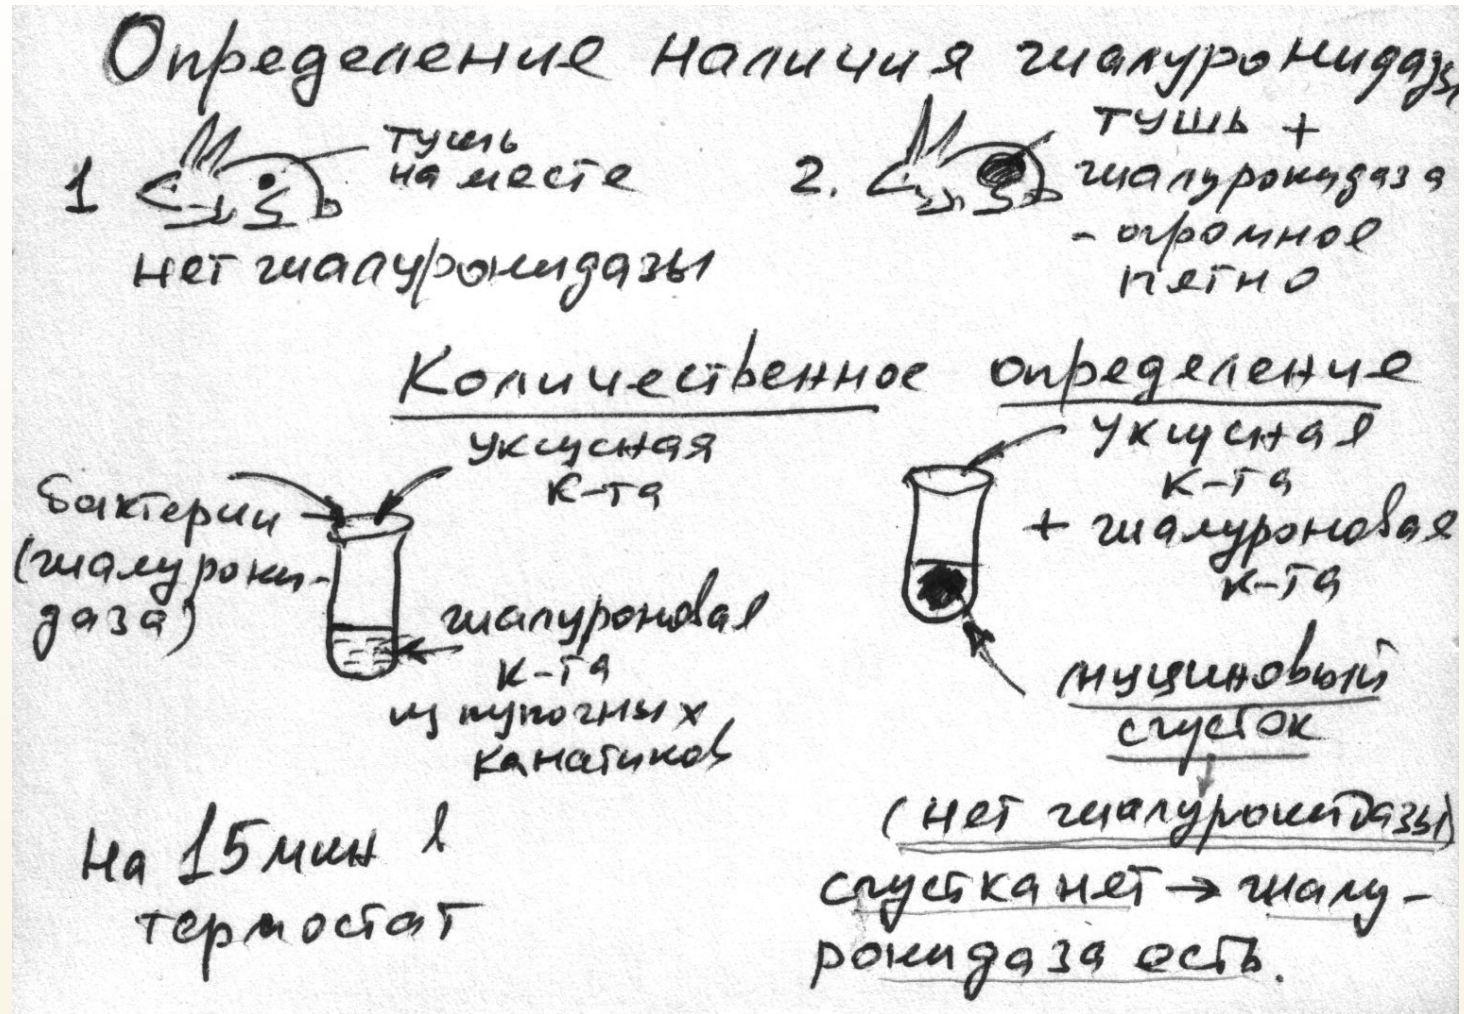 Определение наличия гиалуронидазы
1
тушь
на месте
нет гиалуронидазы
2.
тушь +
гиалуронидаза
- огромное
пятно
Количественное определение
уксусная
к-та
бактерии
(гиалурони-
даза)
гиалуроновая
к-та
из пупочных
канатиков
На 15 мин в
термостат
уксусная
к-та
+ гиалуроновая
к-та
муциновый
сгусток
(нет гиалуронидазы)
сгустка нет → гиалу-
ронидаза есть.